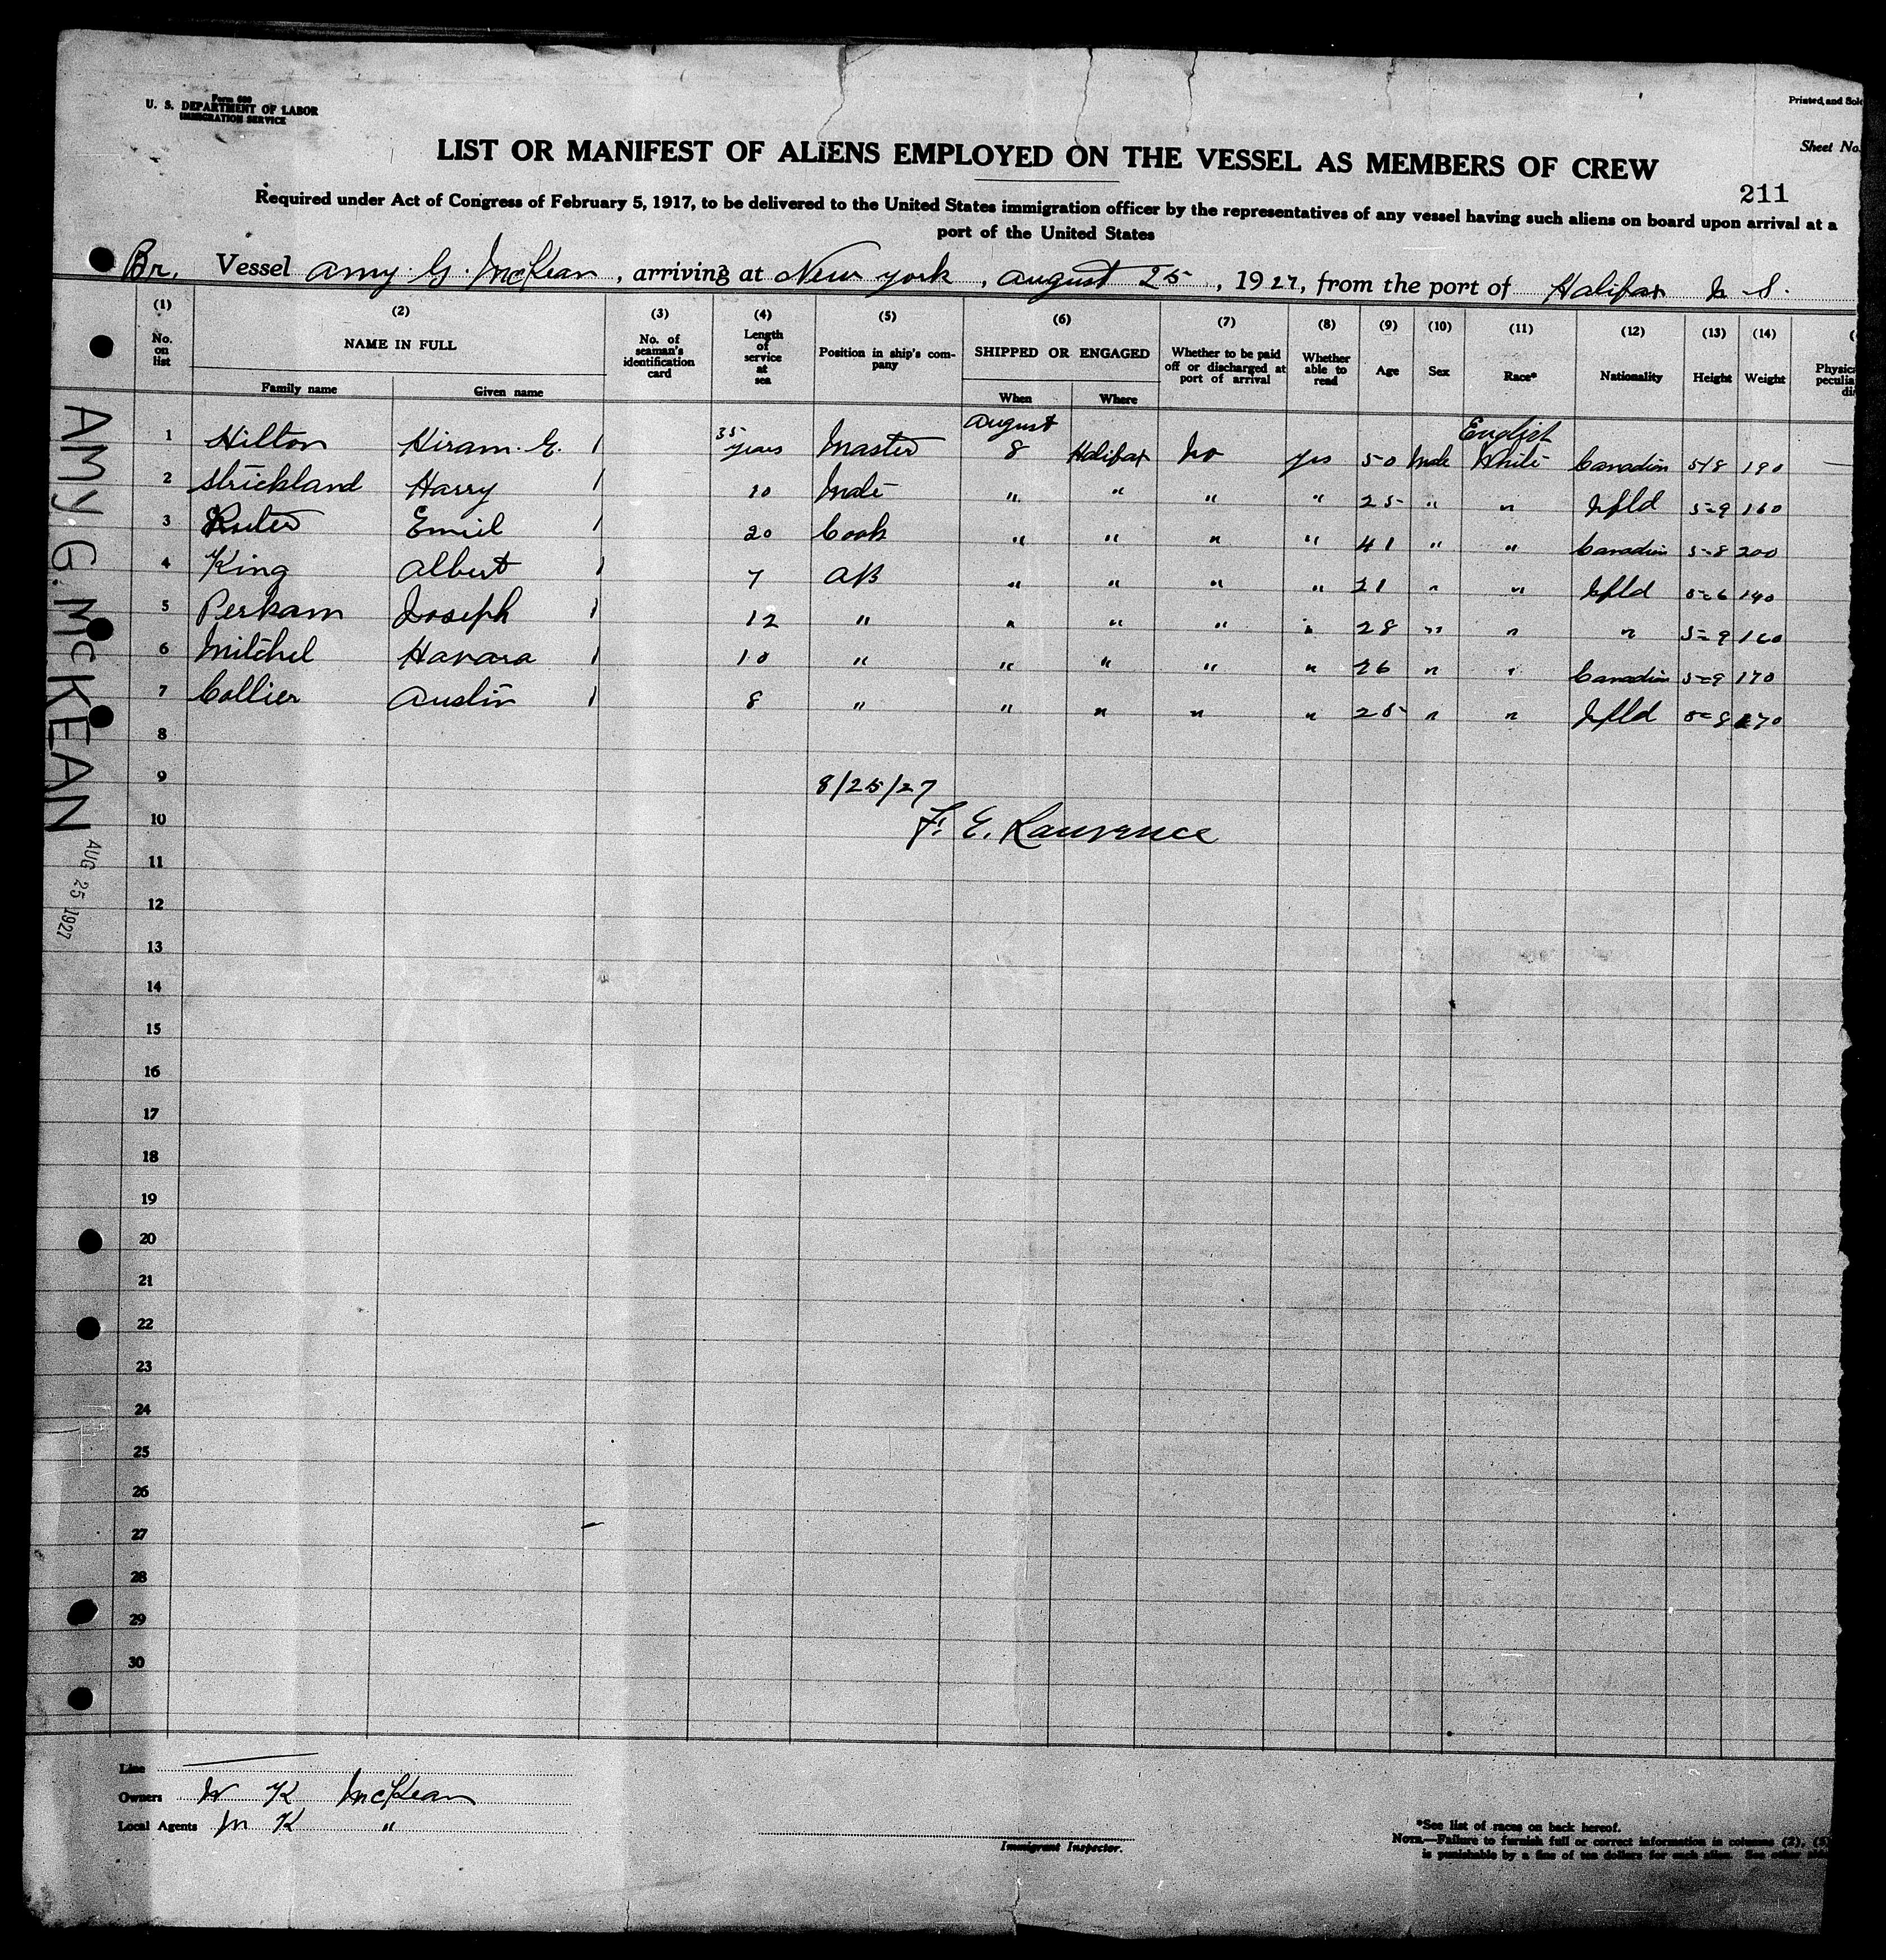 Form 680
U. S. DEPARTMENT OF LABOR
IMMIGRATION SERVICE
Printed and Sold
Sheet No.
LIST OR MANIFEST OF ALIENS EMPLOYED ON THE VESSEL AS MEMBERS OF CREW
211
Required under Act of Congress of February 5, 1917, to be delivered to the United States immigration officer by the representatives of any vessel having such aliens on board upon arrival at a
port of the United States
Br. Vessel Amy G. McKean, arriving at New York, August 25, 1927, from the port of Halifax N S.
(1) (2) (3) (4) (5) (6) (7) (8) (9) (10) (11) (12) (13) (14)
No. on list NAME IN FULL No. of seaman's identification card Length of service at sea Position in ship's company SHIPPED OR ENGAGED Whether to be paid off or discharged at port of arrival Whether able to read Age Sex Race* Nationality Height Weight
Family name Given name When Where
1 Hilton Hiram. E. 35 years Master August 8 Halifax No yes 50 Male English White Canadian 5/8 190 —
2 Strickland Harry 10 Mate " " " " 25 " " Nfld 5=9 160
3 Emiel 20 Cook " " " " 41 " " Canadian 5=8 200
4 King Albert 7 AB " " " " 21 " " Nfld 5=6 140
5 Perham Joseph 12 " " " " " 28 " " " 5=9 160
6 Mitchel 10 " " " " " 26 " " Canadian 5=9 170
7 Collier Austin 8 " " " " " 25 " " Nfld 5=8 170
8
9 8/25/27
10 F. E. Lawrence
11
12
13
14
15
16
17
18
19
20
21
22
23
24
25
26
27
28
29
30
AMY G. McKEAN
AUG 25 1927
Line
Owners W K McKean
Local Agents M K "
Immigrant Inspector.
*See list of races on back hereof.
NOTE.—Failure to furnish full or correct information in columns (2), (5)
is punishable by a fine of ten dollars for each alien. See other